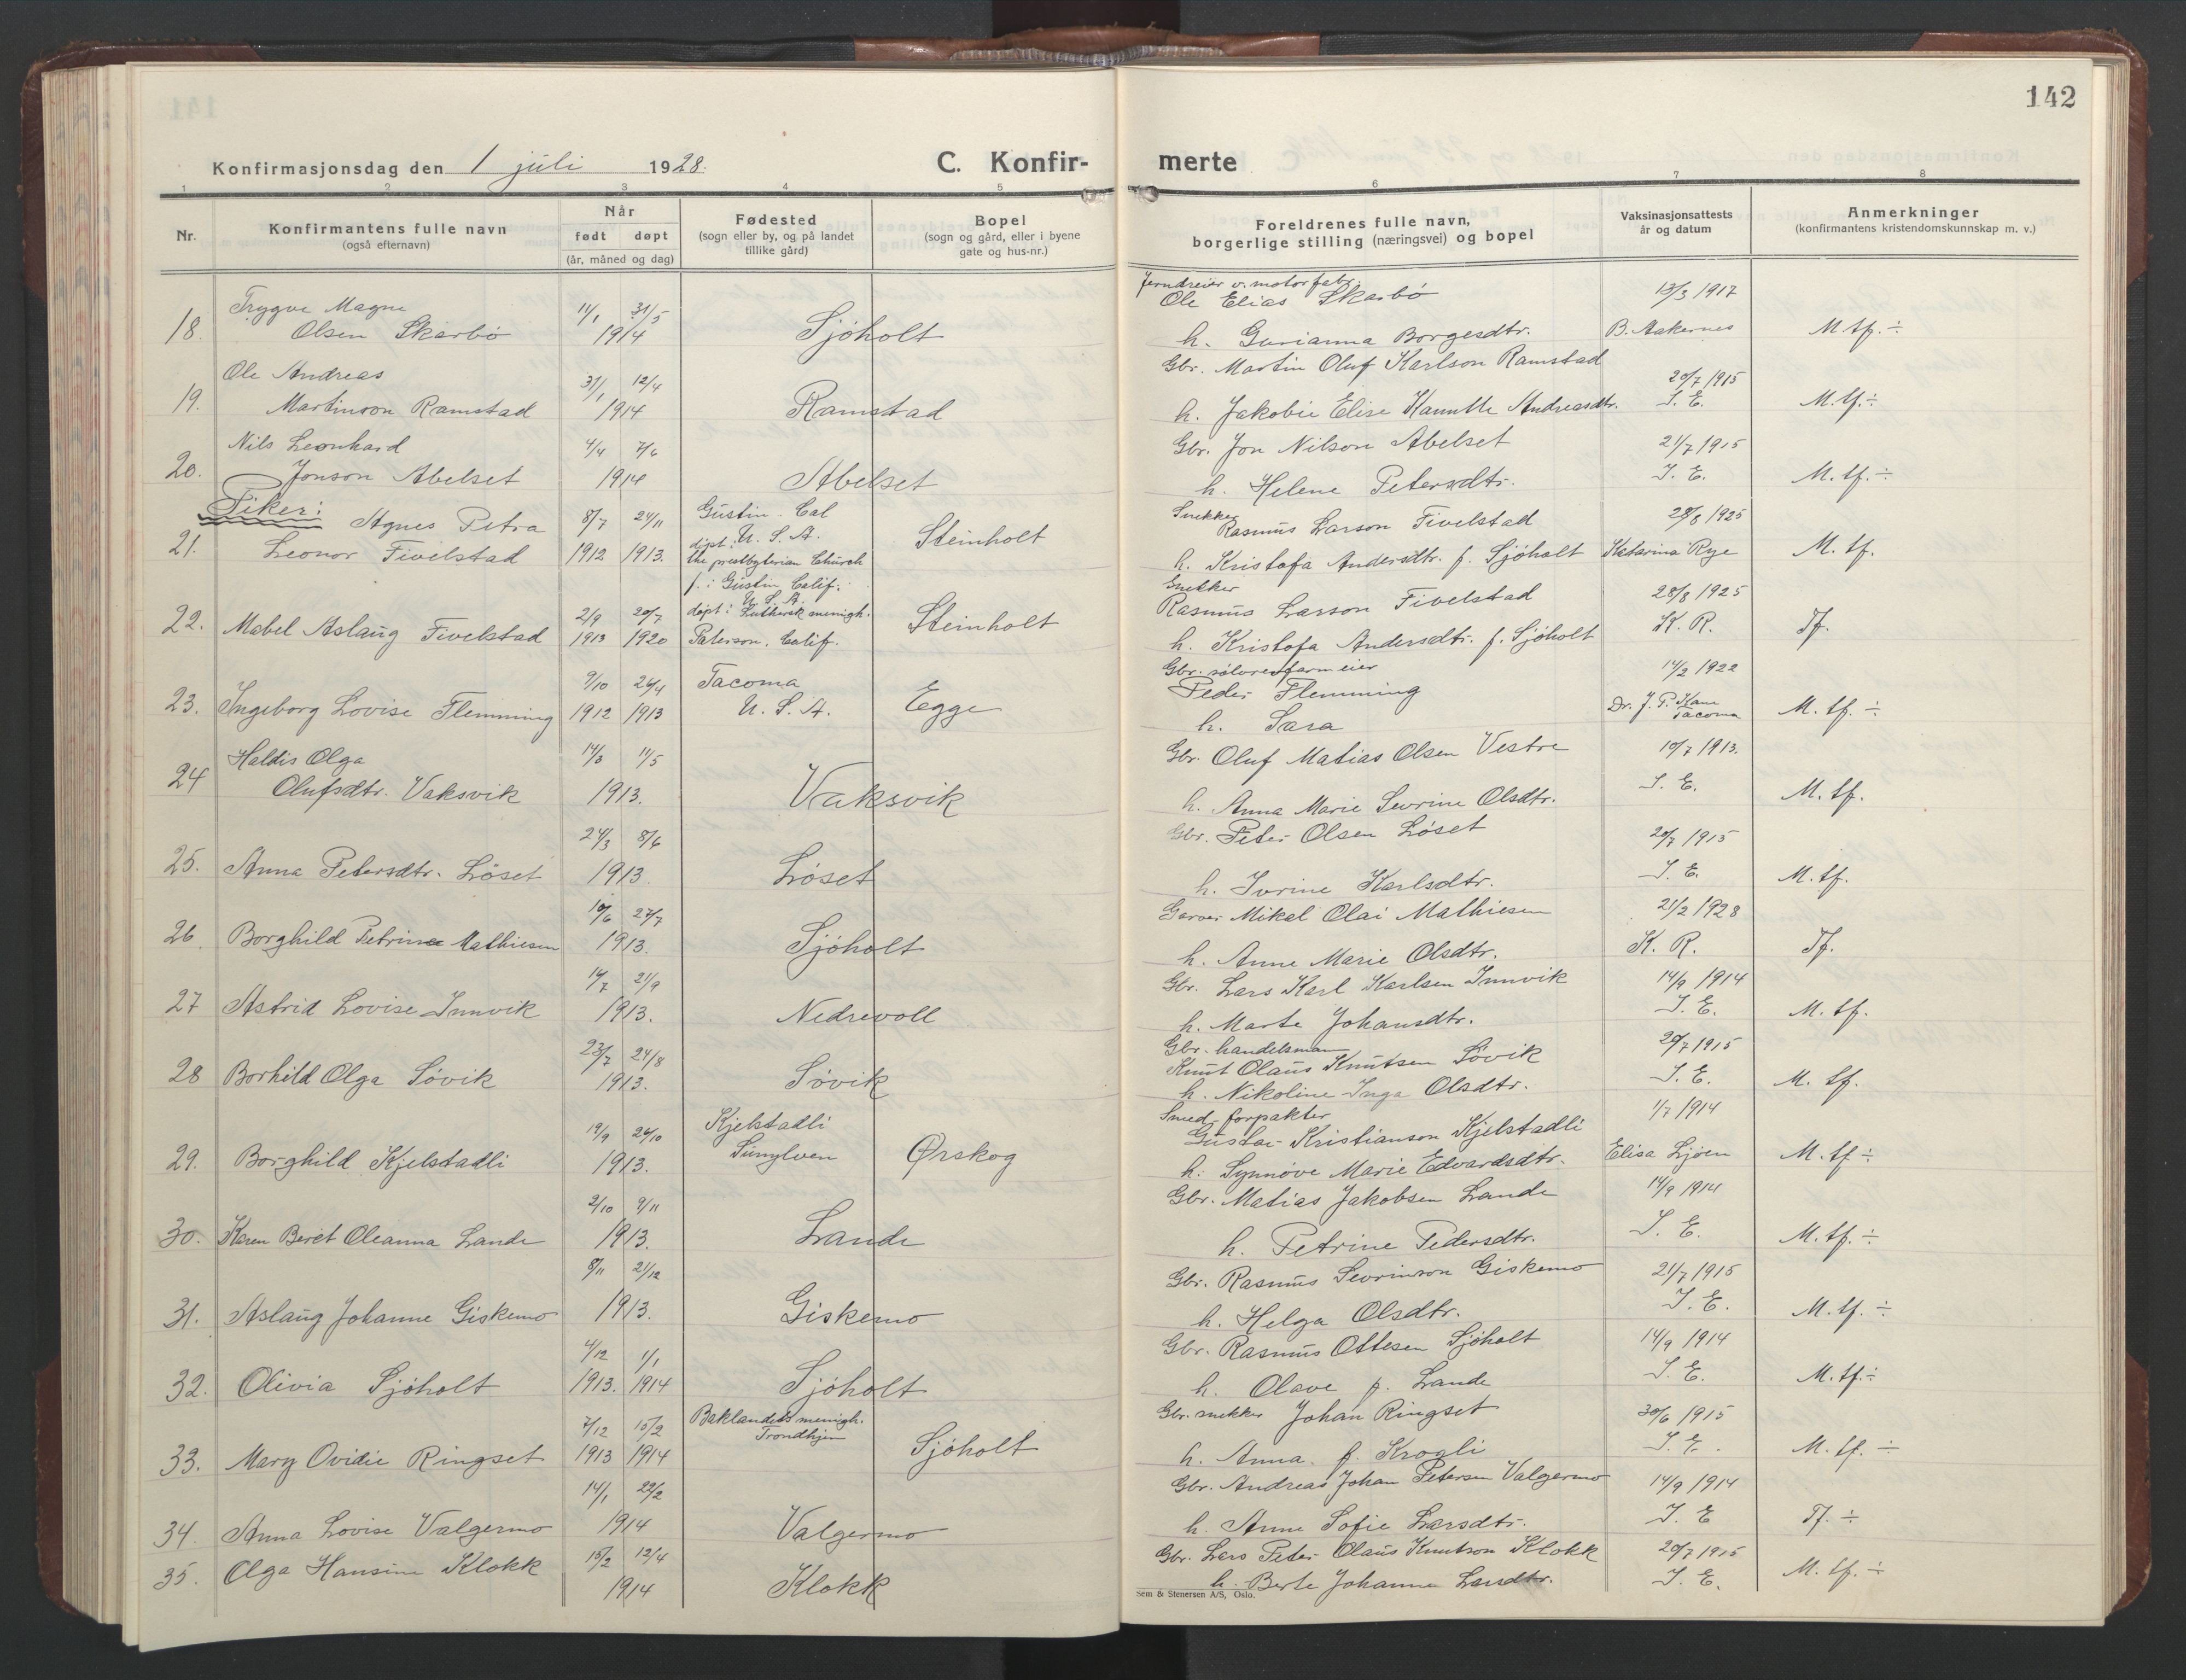 142
Konfirmasjonsdag den 1 juli 1928.
C. Konfir-
merte
1 2 3 4 5 6 7 8
Nr.
Konfirmantens fulle navn
(også efternavn)
Når
født døpt
(år, måned og dag)
Fødested
(sogn eller by, og på landet
tillike gård)
Bopel
(sogn og gård, eller i byene
gate og hus-nr.)
Foreldrenes fulle navn,
borgerlige stilling (næringsvei) og bopel
Vaksinasjonsattests
år og datum
Anmerkninger
(konfirmantens kristendomskunnskap m. v.)
Trygve Magne 11/1 31/5 Jerndreier v. motorfabr.
Ole Elias Skarbö 13/3 1917
18. Olsen Skarbö 1914 Sjöholt h. Gurianna Borgesdtr. B. Aakernes M tf. ÷
Ole Andreas 31/1 12/4 Gbr. Martin Oluf Karlson Ramstad 20/7 1915
19. Martinson Ramstad 1914 Ramstad h. Jakobie Elise Kanutte Andreasdtr. I. E. M. tf. ÷
Nils Leonhard 4/4 7/6 Gbr. Jon Nilson Abelset 21/7 1915
20. Jonson Abelset 1914 Abelset h. Helene Petersdtr. I. E. M. tf. ÷
Piker:
Agnes Petra 8/7 24/11 Gustin. Cal Snekker Rasmus Larson Fivelstad 28/8 1925
döpt: U. S. A.
21. Leonor Fivelstad 1912 1913. the presbyterian Church Steinholt h. Kristofa Andersdtr. f. Sjöholt Katarina Rye M. tf.
f.: Gustin Calif. U. S. A. Snekker
22. Mabel Aslaug Fivelstad 2/9 20/7 döpt: Luthersk menigh. Steinholt Rasmus Larson Fivelstad 28/8 1925
1913 1920 Paterson. Calif. h. Kristofa Andersdtr. f. Sjöholt K. R. Tf.
9/10 26/4 Tacoma Gbr. sölvrevfarm eier 14/2 1922
Peder Flemming
23. Ingeborg Lovise Flemming 1912 1913 U. S. A. Egge h. Sara Dr. J. P. Kane Tacoma M. tf. ÷
Haldis Olga 14/3 11/5 Gbr. Oluf Matias Olsen Vestre 10/7 1913.
24 Olufsdtr. Vaksvik 1913. Vaksvik h. Anna Marie Sevrine Olsdtr. I. E. M. tf.
24/3 8/6 Gbr. Peter Olsen Löset 20/7 1915
25. Anna Petersdtr. Löset 1913. Löset h. Ivrine Karlsdtr. I. E. M. tf.
10/6 27/7 Garver Mikal Olai Mathiesen 21/2 1928
26. Borghild Petrine Mathiesen 1913. Sjöholt h. Anne Marie Olsdtr. K. R. Tf.
14/7 21/9 Gbr. Lars Karl Karlsen Innvik 14/9 1914
27 Astrid Lovise Innvik 1913. Nedrevoll h. Marte Johansdtr. I. E. M. tf.
23/7 24/8 Gbr. handelsman 20/7 1915
Knut Olaus Knutsen Sövik
28 Borhild Olga Sövik 1913. Sövik h. Nikoline Inga Olsdtr. I. E. M. tf.
19/9 26/10 Kjelstadli Smed, forpakter 1/7 1914
Gustav Kristianson Kjelstadli
29. Borghild Kjelstadli 1913. Sunylven Ørskog h. Synnöve Marie Edvardsdtr. Elisa Ljöen M. tf ÷
2/10 9/11 Gbr. Matias Jakobsen Lande 14/9 1914
30. Karen Beret Oleanna Lande 1913. Lande h. Petrine Pedersdtr. I. E. M. tf. ÷
8/11 21/12 Gbr. Rasmus Sevrinson Giskemo 21/7 1915
31. Aslaug Johanne Giskemo 1913. Giskemo h. Helga Olsdtr. I. E. M. tf. ÷
4/12 1/1 Gbr. Rasmus Ottesen Sjöholt 14/9 1914
32. Olivia Sjöholt 1913. 1914 Sjöholt h. Olave f. Lande I. E. M. tf. ÷
7/12 15/2 Baklandets menigh. Trondhjem Gbr. snekker Johan Ringset 30/6 1915
33. Mary Ovidie Ringset 1913 1914 Sjöholt h. Anna f. Krogli I. E. M. tf. ÷
14/1 22/2 Gbr. Andreas Johan Petersen Valgermo 14/9 1914
34. Anna Lovise Valgermo 1914 Valgermo h. Anne Sofie Larsdtr. I. E Tf. ÷
35. Olga Hansine Klokk 15/2 12/4 Gbr. Lars Peter Olaus Knutson Klokk 20/7 1915
1914 Klokk h. Berte Johanne Larsdtr. I. E. M. tf. ÷
Sem & Stenersen A/S, Oslo.